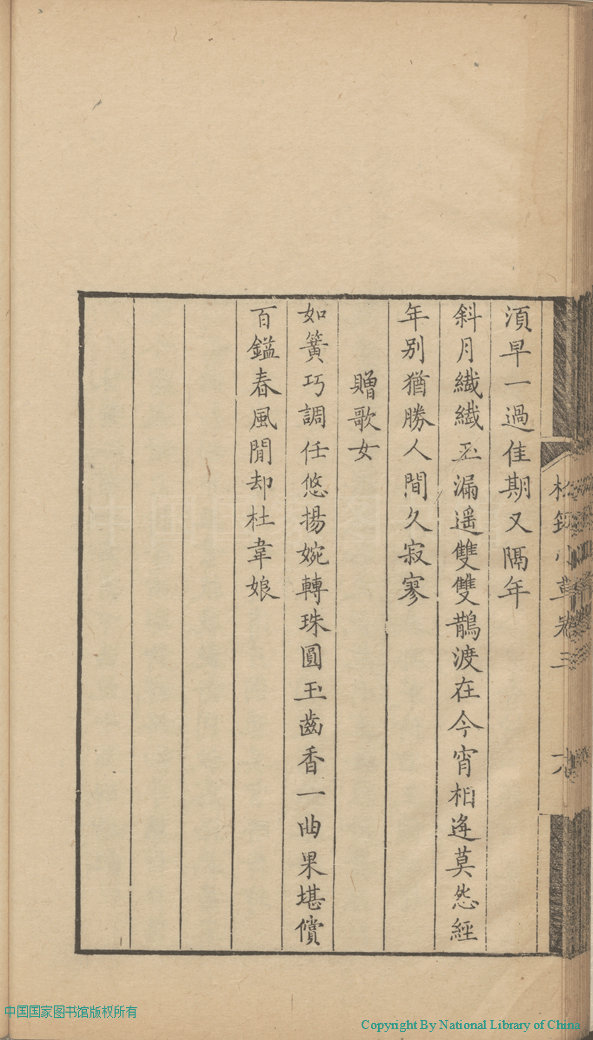 湏早一過佳期又隔年
斜月纎纎玉漏遥雙雙鵲渡在今宵相逢莫怨經
年别猶勝人間久寂寥
贈歌女
如簧巧調任悠揚婉轉珠圓玉齒香一曲果堪償
百鎰春風閒却杜韋娘
小草卷三
中国国家图书馆版权所有
Copyright By National Library of China